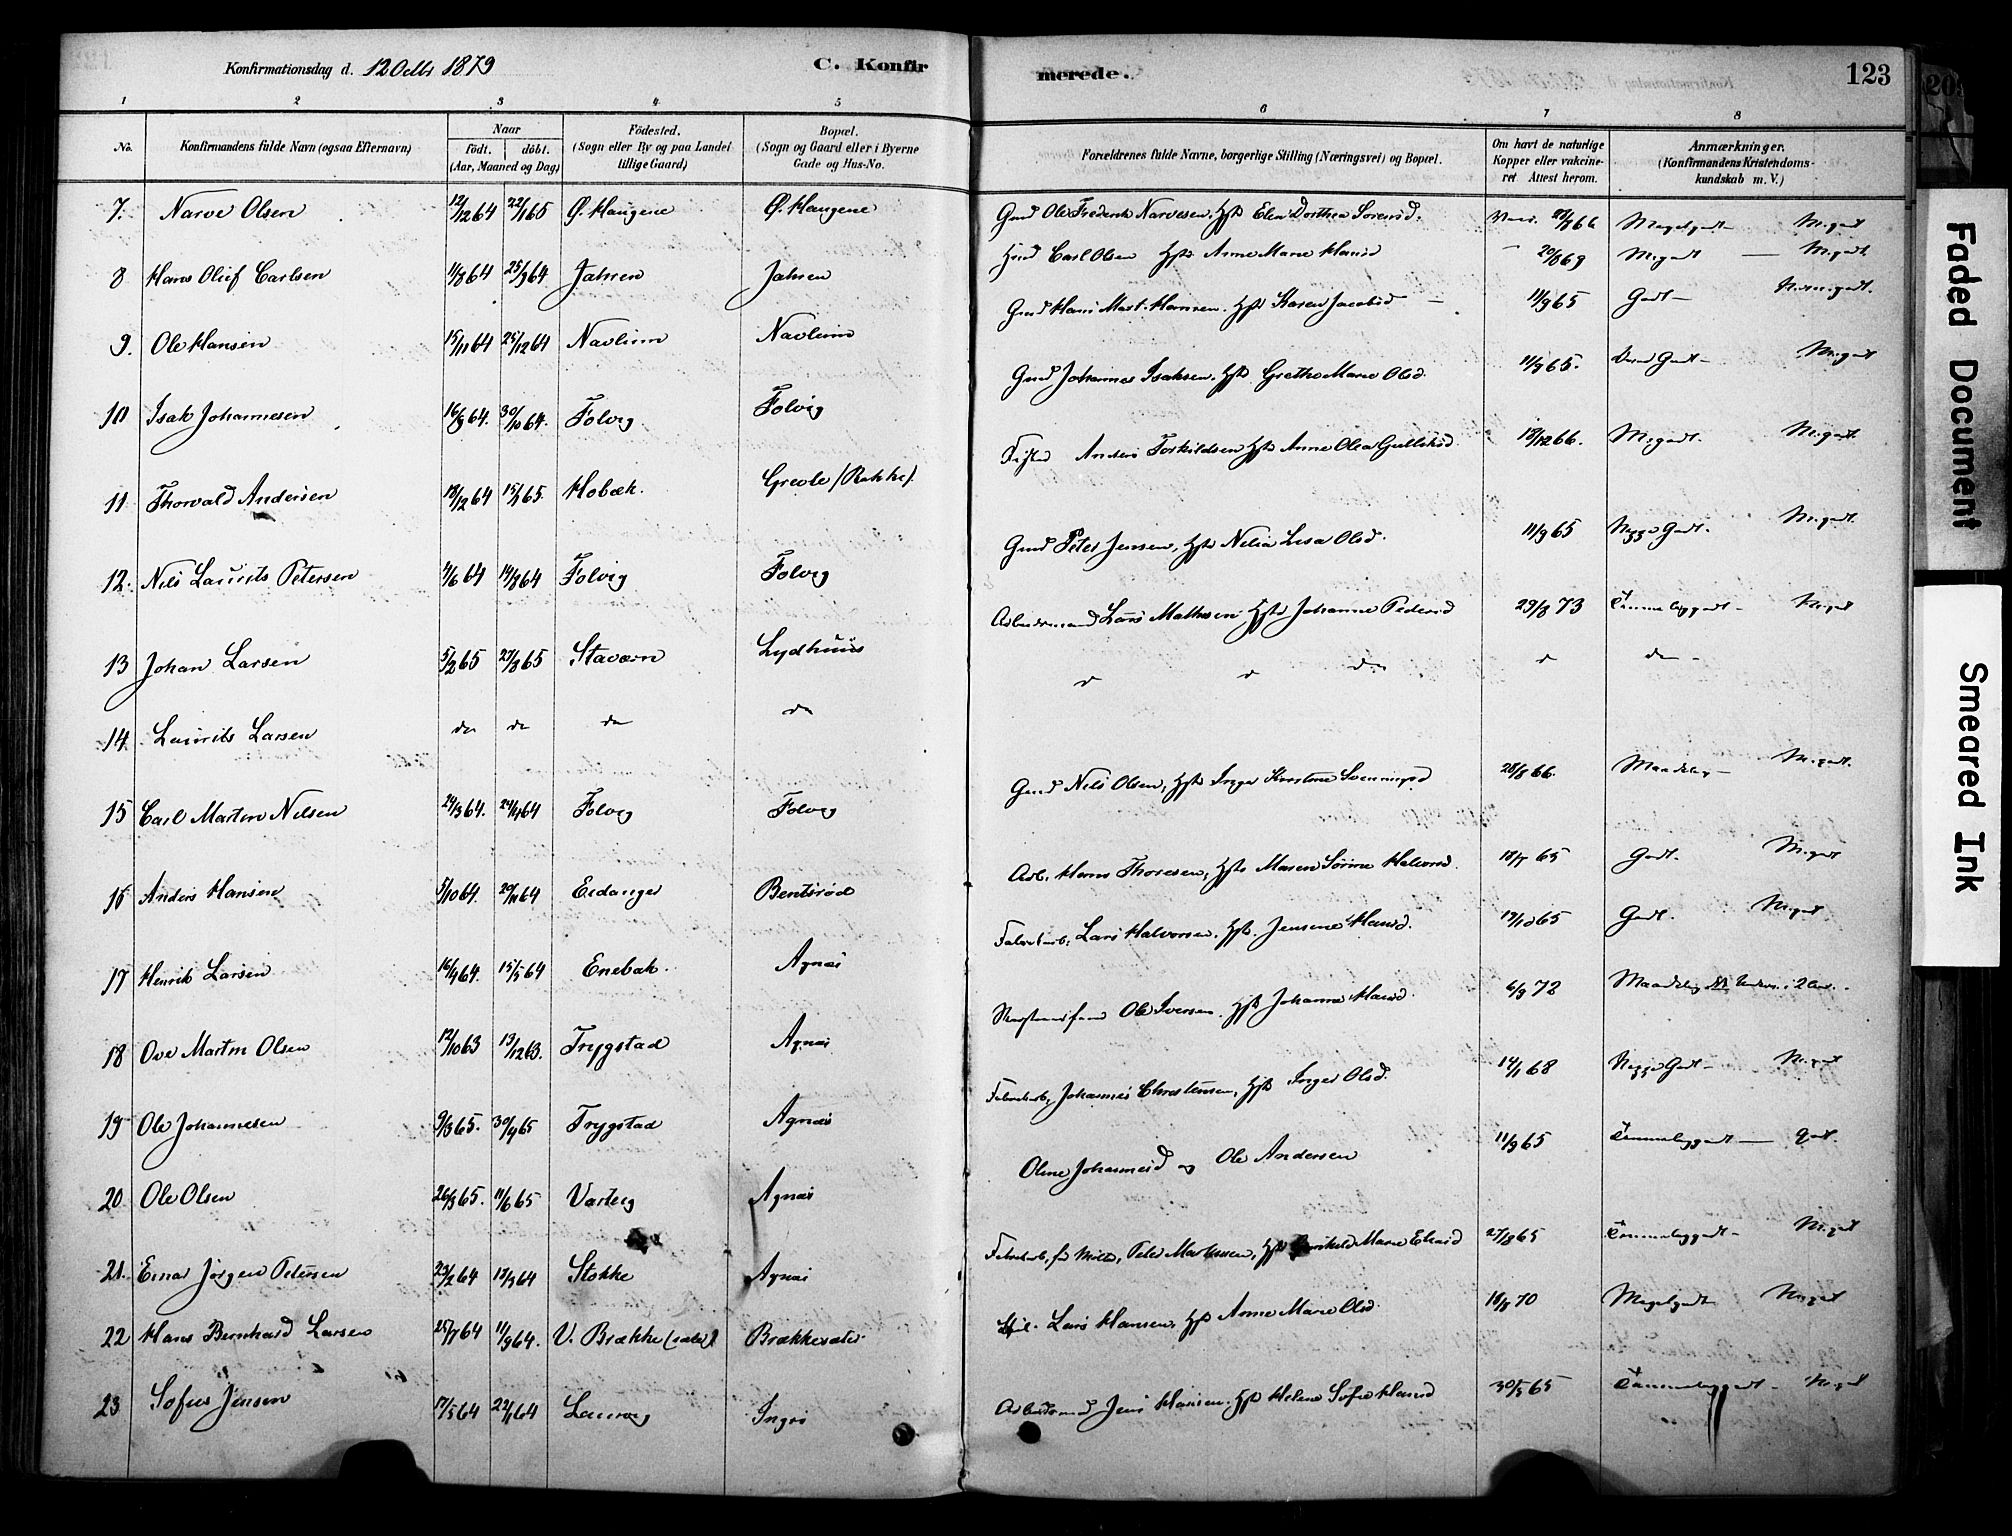 Konfirmationsdag d. 12 Octbr 1879
C. Konfir
merede.
123
1 2 3 4 5 6 7 8
No.
Konfirmandens fulde Navn (ogsaa Efternavn)
Naar
födt. döbt.
(Aar, Maaned og Dag)
Födested.
(Sogn eller By og paa Landet
tillige Gaard)
Bopæl.
(Sogn og Gaard eller i Byerne
Gade og Hus-No.
Forældrenes fulde Navne, borgerlige Stilling (Næringsvei) og Bopæl.
Om havt de naturlige
Kopper eller vakcine-
ret Attest herom.
Anmærkninger.
(Konfirmandens Kristendoms-
kundskab m. V.)
7. Narve Olsen 12/12 64 22/1 65 Ø. Haugene Ø. Haugene Gmd Ole Frederik Narvesen, Hst Elen Dorthea Sørensd. Meget godt M. godt
8 Hans Oluf Carlsen 11/8 64 25/9 64 Jahren Jahren Carl Olsen Hst Anne Marie Hansd 20/8 69 M. godt M. godt
9. Ole Hansen 15/11 64 25/12 64 Navlum Navlum Gmd Hans Mart. Hansen. Hst Karen Jacobsd 11/9 65 Godt
10 Isak Johannesen 16/9 64. 30/10 64. Folvig Folvig Gmd Johannes Isaksen. Hst Grethe Marie Olsd. 11/9 65. Godt M. godt
11 Thorvald Andersen 18/12 64 15/1 65. Hobæk. Grevle (Rakke). Anders Torkildsen Hst Anne Olea Gulliksd. 18/12 66. M. godt. M. godt.
12. Nils Laurits Petersen 4/6 64 14/8 64 Folvig Folvig Gmd Peter Jensen, Hst Nilia Lisa Olsd. 11/9 65 Godt. M. godt.
13 Johan Larsen 5/2 65 27/8 65 Stavern Lydhuus Arbeidsmand Lars Mathisen Hst Johanne Pedersd 29/8 73 Temmelig godt M. godt
14. Laurits Larsen do do do do do do
15 Carl Martin Nilsen 24/3 64. 24/4 64 Folvig Folvig Gmd Nils Olsen, Hst Inger Kirstine Svenningsd 28/8 66. Maadelig M. godt.
16 Anders Hansen 5/10 64. 20/11 64 Eidanger Bentsrød Arb. Hans Thoresen, Hst Maren Sørine Halvorsd. 18/7 65 Godt. M. godt
17 Henrik Larsen 16/4 64. 15/5 64 Enebak. Agnæs Fabrikarb. Lars Halvorsen. Hst. Jensine Hansd. 19/10 65 Godt. M. godt.
18 Ove Martin Olsen 12/10 63 13/12 63. Trygstad Agnæs Ole Iversen. Hst Johanne Hansd. 6/9 72 Maadelig
19 Ole Johannesen 9/3 65. 30/4 65 Trygstad Agnæs Fabrikarb, Johannes Christensen, Hst Inger Olsd. 14/1 68 Godt M. godt
20 Ole Olsen 26/3 65. 11/6 65 Varteig Agnæs Oline Johannesd og Ole Andersen 11/9 65 Temmelig godt godt.
21. Einar Jørgen Petersen 23/2 64 64 Stokke Agnæs Fabrikarb, Peter Marie 27/8 65 Temmelig godt M. godt
22 Hans Bernhard Larsen 25/7 64 11/9 64. V. Brække (sæter) Brækkesæter Lars Hansen, Hst Anne Marie Olsd. 70 Meget godt M. godt
23 Sofus Jensen 17/5 64 64 Laurvig Ingris Arbeidsmd Jens Hansen. Hst Helene Sofie Hansd 30/5 65 Temmelig godt M. godt
Faded Document
Smeared Ink